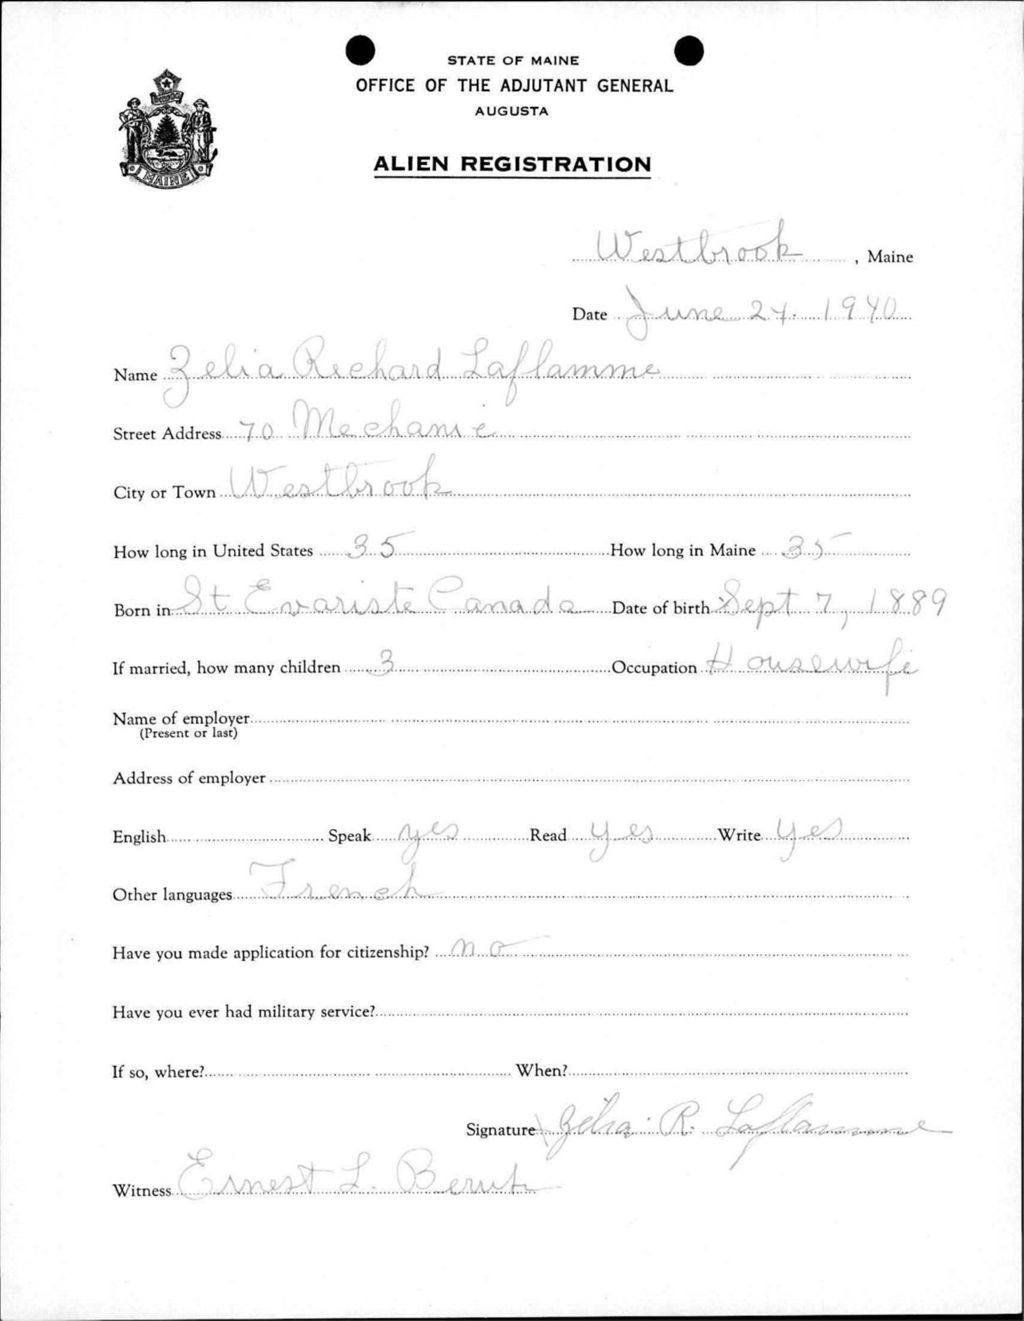 STATE OF MAINE
OFFICE OF THE ADJUTANT GENERAL
AUGUSTA
ALIEN REGISTRATION
MAINE
Westbrook, Maine
Date June 24. 1940
Name Zelia Richard Laflamme
Street Address 70 Mechanic
City or Town Westbrook
How long in United States 35 How long in Maine 35
Born in St Evariste Canada Date of birth Sept 7, 1889
If married, how many children 3 Occupation Housewife
Name of employer
(Present or last)
Address of employer
English Speak yes Read yes Write yes
Other languages French
Have you made application for citizenship? no
Have you ever had military service?
If so, where? When?
Signature Zelia R. Laflamme
Witness Ernest L.